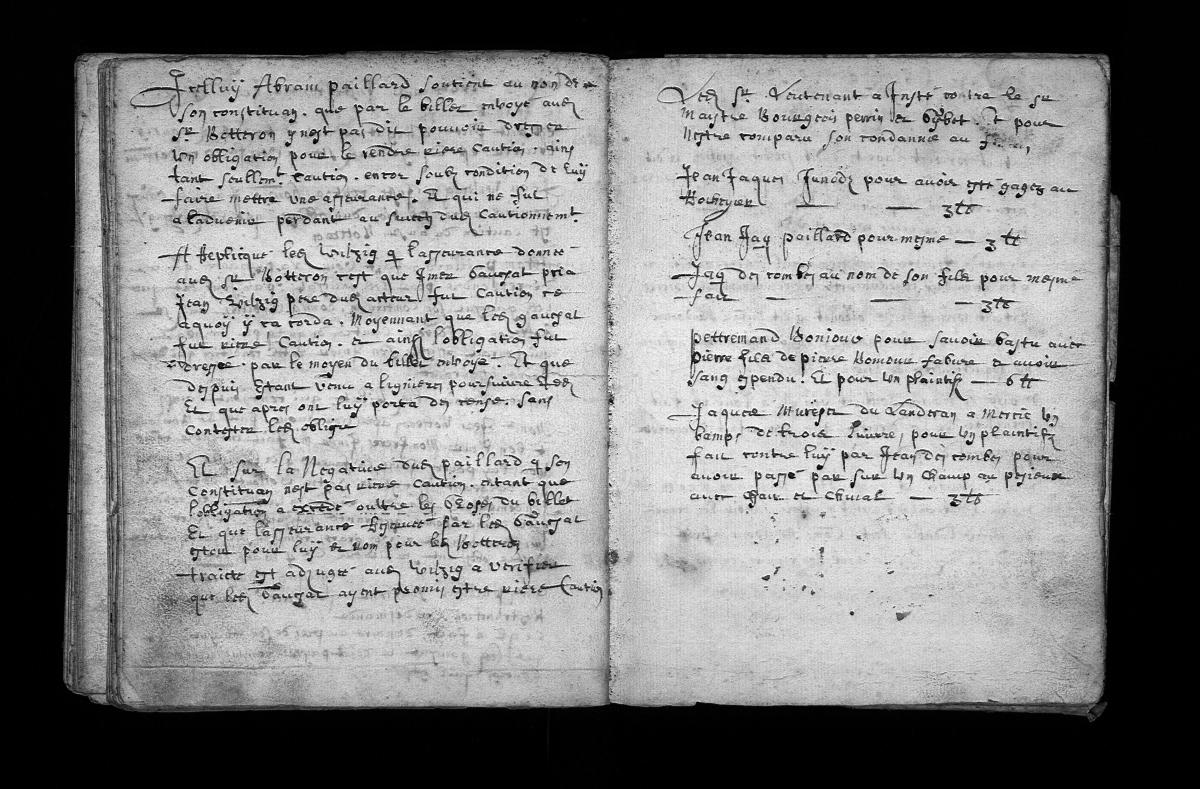 Icelluy Abram paillard soutient au non de
son constituan. que par le billet envoye aud.
Sr Botteron y nest pas dit pouvoir dresser
un obligation pour le rendre riere caution. ains
tant seullemt caution. encor soubz condition de luy
faire mettre une asseurance. Et qui ne fut
a ladvenir perdant au suiect dud. Cautionnemt.
A Repliqué led. Wilzig q lasseurance donné
aud. Sr Botteron c'est que Imer Gauchat pria
Jean Wilzig père dud. acteur fut Caution ce
aquoy y sacorda. Moyennant que led. Gauchat
fut riere Caution. et ainsy lobligation fut
dressé. par le moyen du billet envoyé. Et que
despuis estant venu a lignieres poursuivre led.
Et que apres ont luy porta des cense. sans
contester led. oblige
Et sur la Negative dud. paillard q son
Constituan nest pas riere Caution. estant que
lobligation a excedé oultre les choses du billet
Et que lasseurance par led. Gauchat
estoit pour luy et nom pour led. Botteron
traicté est adjugé aud. Wilzig a verifier
que led. Gauchat ayent promis estre riere Caution
Led. Sr. Lieutenant a Insté contre le Sr
Maistre Bourgeois perrin et pour
nestre comparu son condamné au
Jean Jaques Junod pour avoir esté gagez au
— — 3 lb
Jean Jaq paillard pour mesme — 3 lb
Jaq des combes au nom de son filz pour mesme
fait — — — 3 lb
pettremand Bonjour pour savoir bastu avec
pierre filz de pierre Bonjour fabvre et avoir
sang espendu. Et pour un plaintif — 6 lb
Jaques du Landeran a Mercié un
bamps de trois livvre, pour un plaintif
fait contre luy par Jean des combes pour
avoir passé par sur un champ au
avec chair et chival — 3 lb